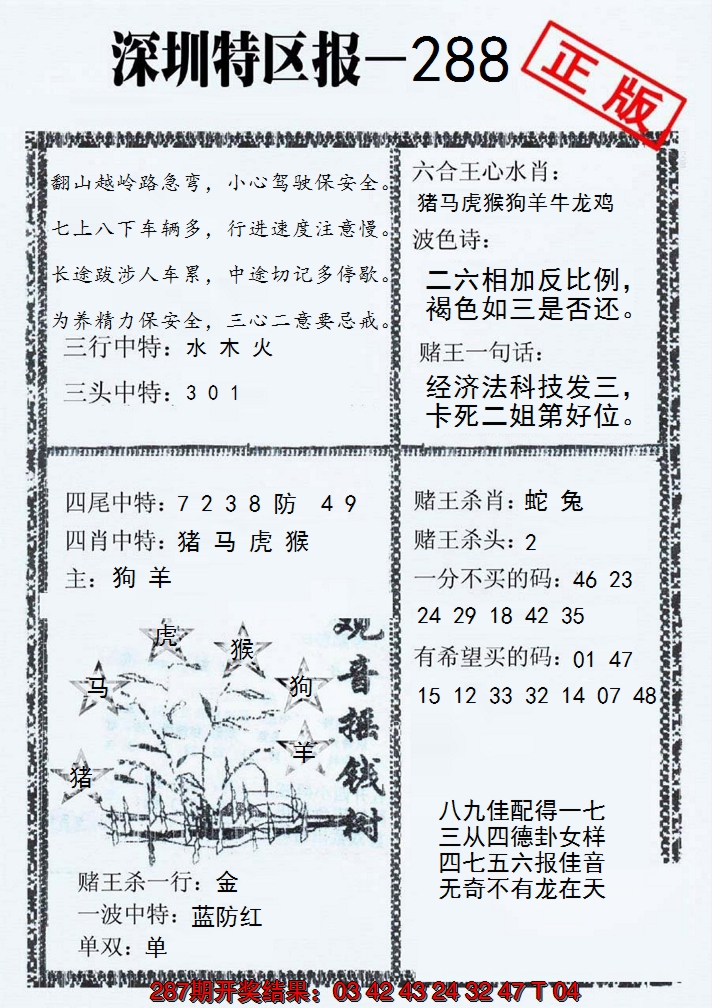 深圳特区报—288
正版
翻山越岭路急弯，小心驾驶保安全。
七上八下车辆多，行进速度注意慢。
长途跋涉人车累，中途切记多停歇。
为养精力保安全，三心二意要忌戒。
三行中特：水 木 火
三头中特：3 0 1
六合王心水肖：
猪马虎猴狗羊牛龙鸡
波色诗：
二六相加反比例，
褐色如三是否还。
赌王一句话：
经济法科技发三，
卡死二姐第好位。
四尾中特：7 2 3 8 防 4 9
四肖中特：猪 马 虎 猴
主：狗 羊
虎
猴
马
狗
羊
猪
观音摇钱树
赌王杀一行：金
一波中特：蓝防红
单双：单
赌王杀肖：蛇 兔
赌王杀头：2
一分不买的码：46 23
24 29 18 42 35
有希望买的码：01 47
15 12 33 32 14 07 48
八九佳配得一七
三从四德卦女样
四七五六报佳音
无奇不有龙在天
287期开奖结果：03 42 43 24 32 47 T 04